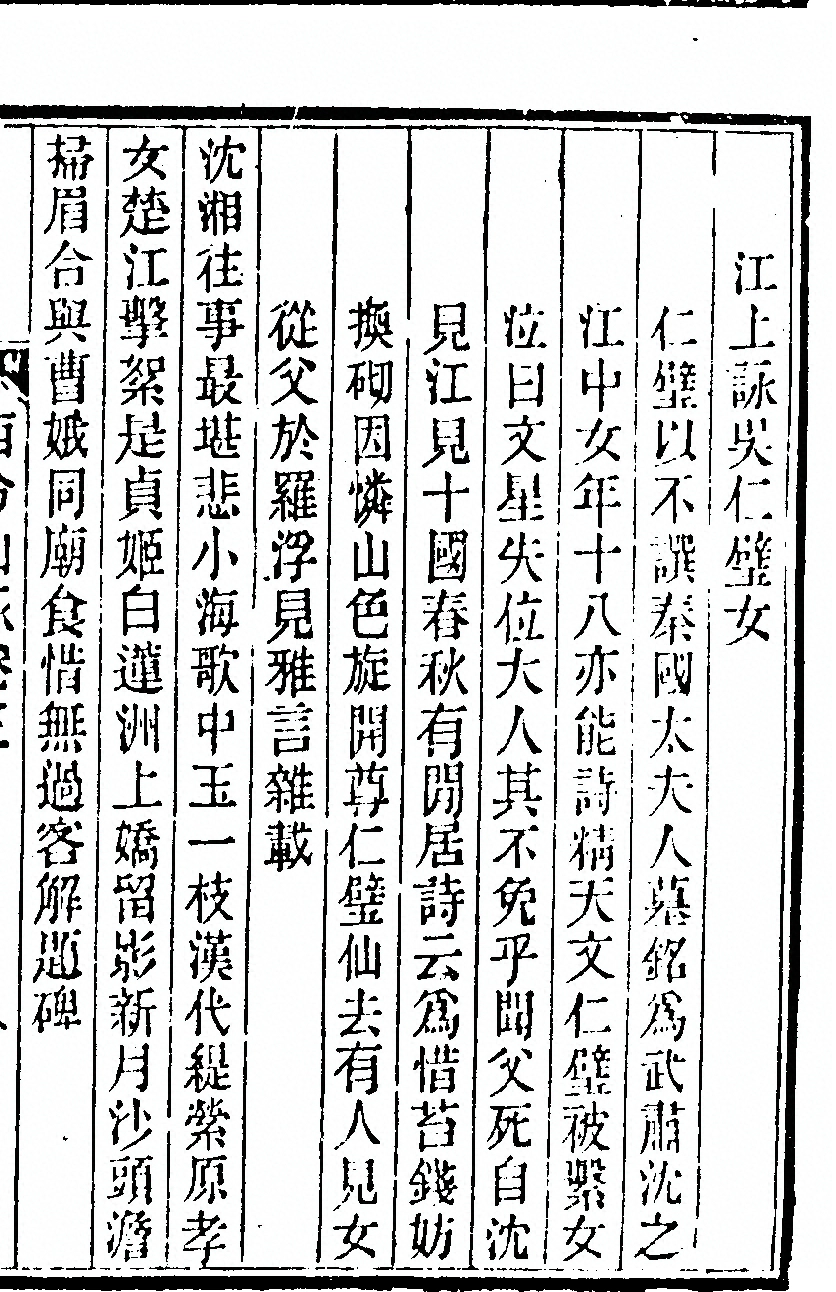 江上詠吳仁璧女
仁璧以不譔秦國太夫人墓銘為武肅沈之
江中女年十八亦能詩精天文仁璧被繫女
泣曰文星失位大人其不免乎聞父死自沈
見江見十國春秋有閒居詩云為惜苔錢妨
換砌因憐山色旋開尊仁璧仙去有人見女
從父於羅浮見雅言雜載
沈湘往事最堪悲小海歌中玉一枝漢代緹縈原孝
女楚江擊絮是貞姬白蓮洲上嬌留影新月沙頭澹
掃眉合與曹娥同廟食惜無過客解題碑